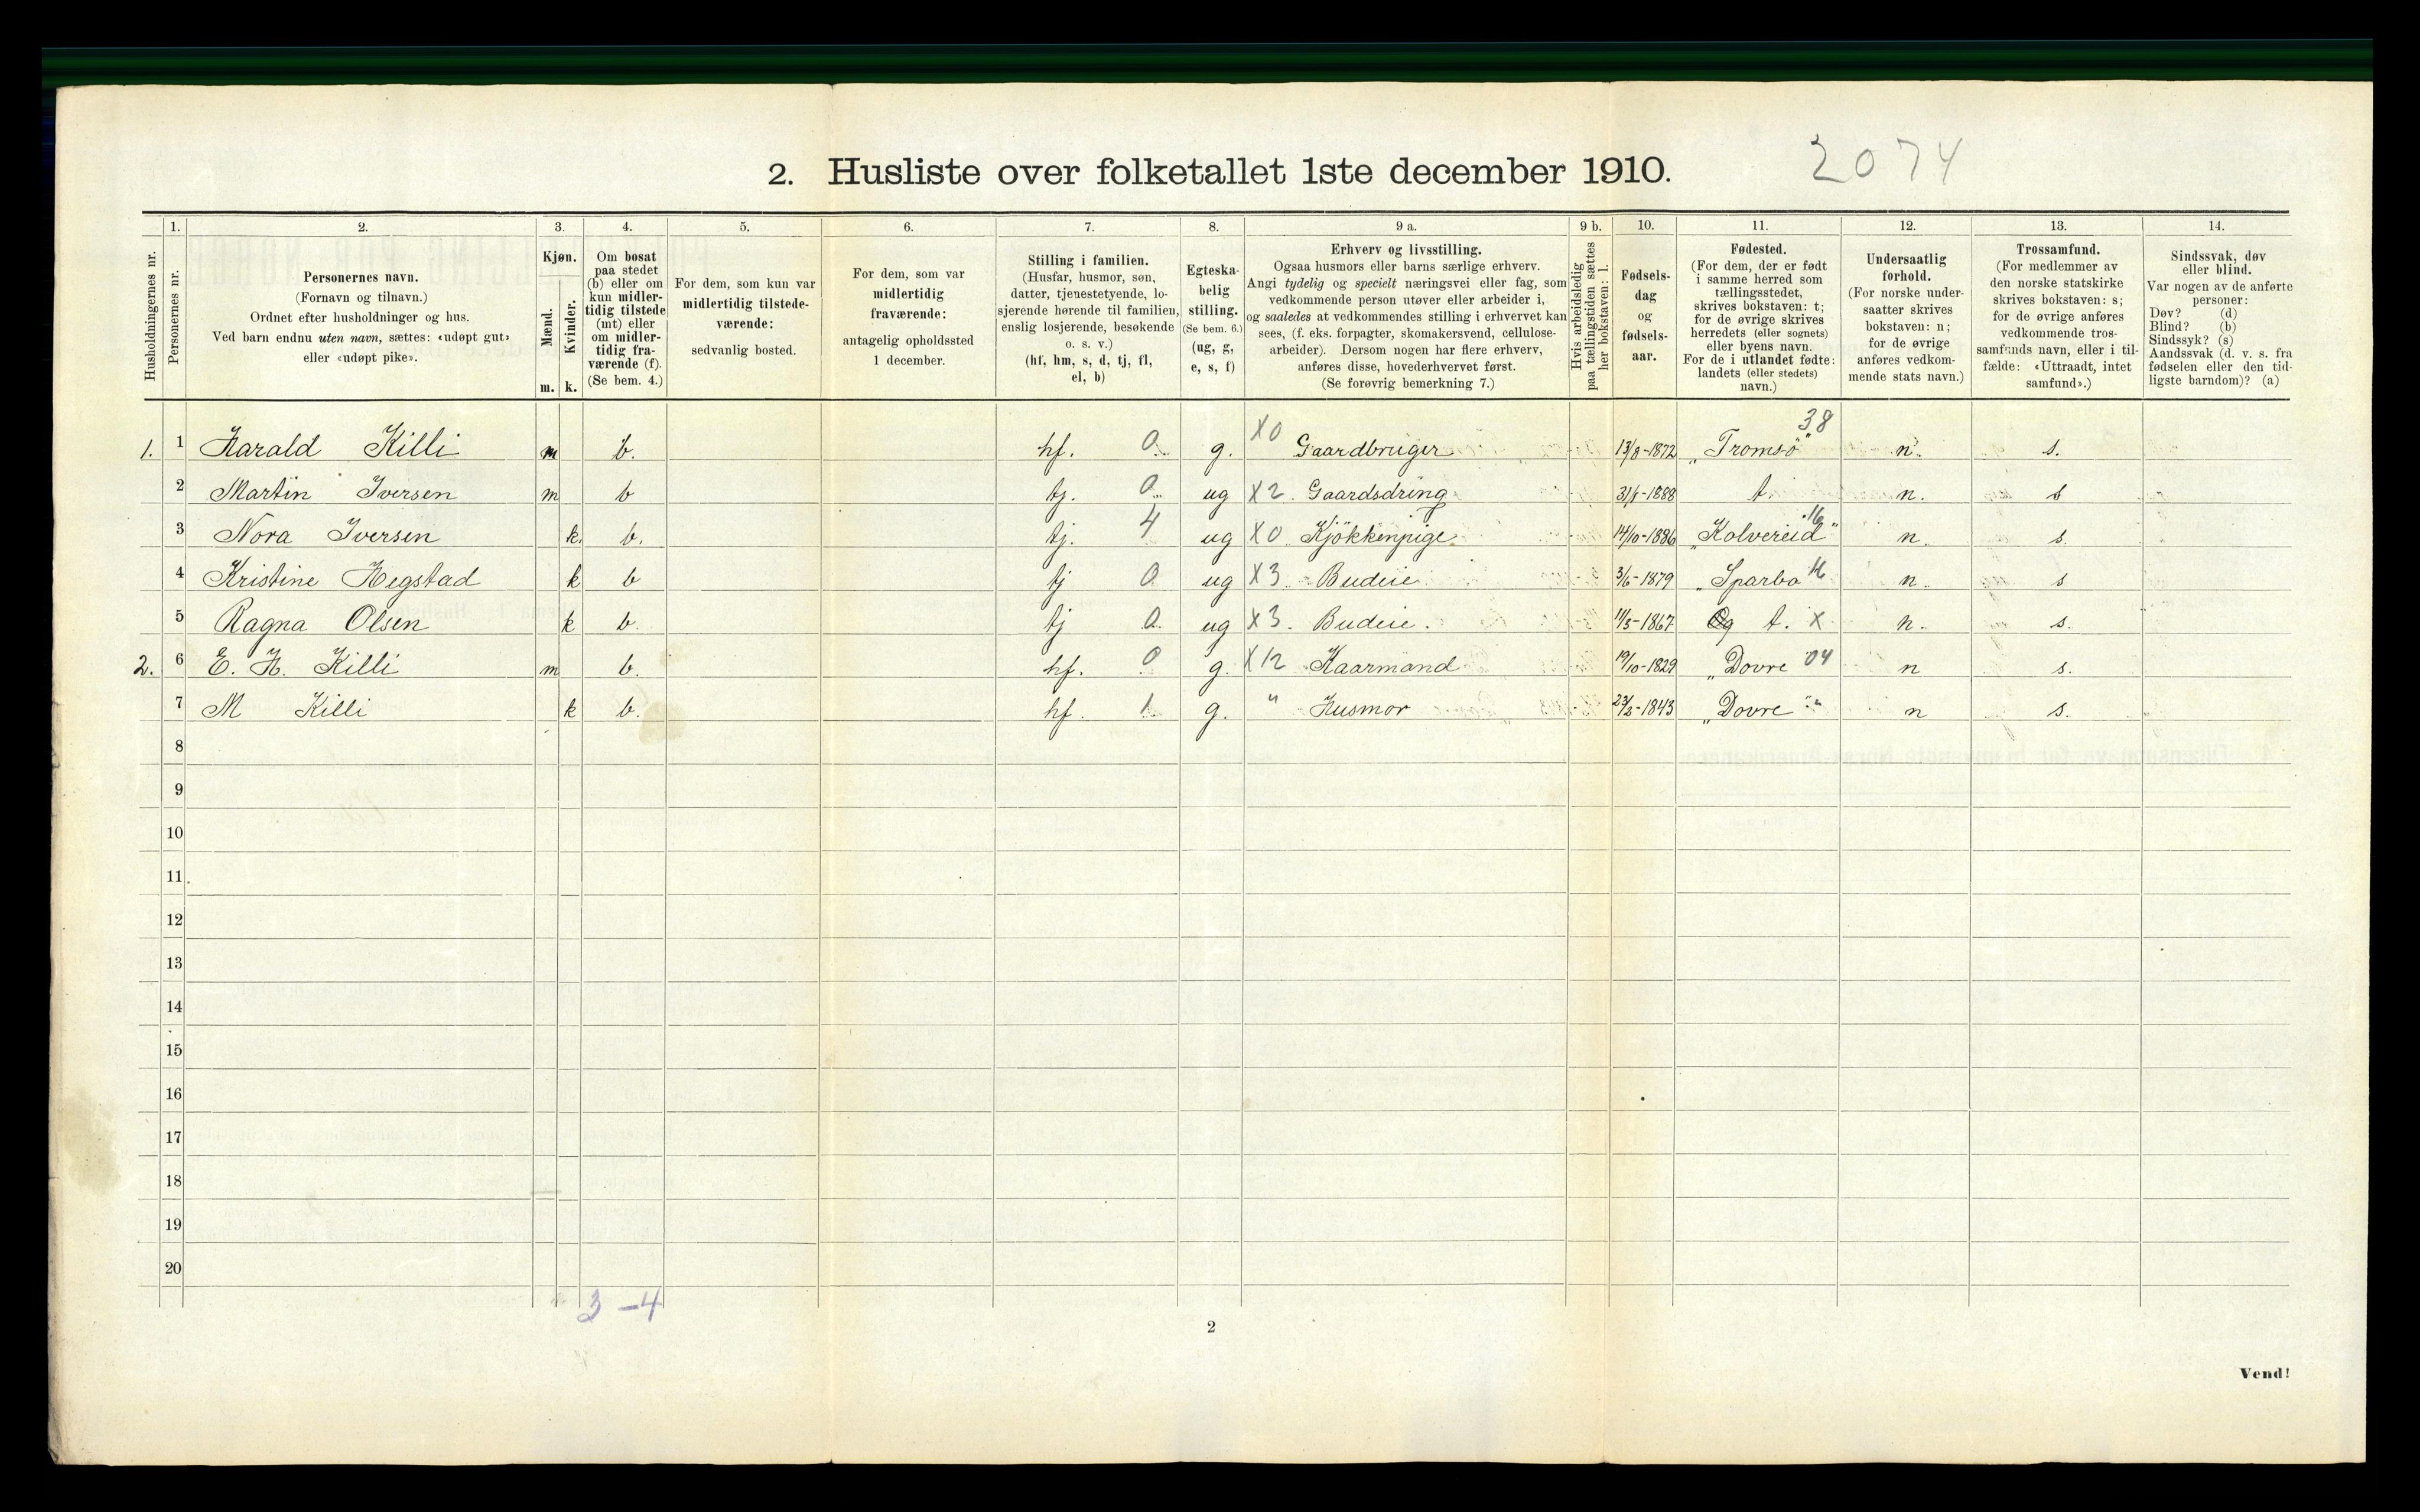 2. Husliste over folketallet 1ste december 1910. 2074
1. 2. 3. 4. 5. 6. 7. 8. 9 a. 9 b. 10. 11. 12. 13. 14.
Husholdningernes nr.
Personernes nr.
Personernes navn.
(Fornavn og tilnavn.)
Ordnet efter husholdninger og hus.
Ved barn endnu uten navn, sættes: «udøpt gut»
eller «udøpt pike».
Kjøn.
Mænd.
Kvinder.
m. k.
Om bosat
paa stedet
(b) eller om
kun midler-
tidig tilstede
(mt) eller
om midler-
tidig fra-
værende (f).
(Se bem. 4.)
For dem, som kun var
midlertidig tilstede-
værende:
sedvanlig bosted.
For dem, som var
midlertidig
fraværende:
antagelig opholdssted
1 december.
Stilling i familien.
(Husfar, husmor, søn,
datter, tjenestetyende, lo-
sjerende hørende til familien,
enslig losjerende, besøkende
o. s. v.)
(hf, hm, s, d, tj, fl,
el, b)
Egteska-
belig
stilling.
(Se bem. 6.)
(ug, g,
e, s, f)
Erhverv og livsstilling.
Ogsaa husmors eller barns særlige erhverv.
Angi tydelig og specielt næringsvei eller fag, som
vedkommende person utøver eller arbeider i,
og saaledes at vedkommendes stilling i erhvervet kan
sees, (f. eks. forpagter, skomakersvend, cellulose-
arbeider). Dersom nogen har flere erhverv,
anføres disse, hovederhvervet først.
(Se forøvrig bemerkning 7.)
Hvis arbeidsledig
paa tællingstiden sættes
her bokstaven: l.
Fødsels-
dag
og
fødsels-
aar.
Fødested.
(For dem, der er født
i samme herred som
tællingsstedet,
skrives bokstaven: t;
for de øvrige skrives
herredets (eller sognets)
eller byens navn.
For de i utlandet fødte:
landets (eller stedets)
navn.)
Undersaatlig
forhold.
(For norske under-
saatter skrives
bokstaven: n;
for de øvrige
anføres vedkom-
mende stats navn.)
Trossamfund.
(For medlemmer av
den norske statskirke
skrives bokstaven: s;
for de øvrige anføres
vedkommende tros-
samfunds navn, eller i til-
fælde: «Uttraadt, intet
samfund».)
Sindssvak, døv
eller blind.
Var nogen av de anførte
personer:
Døv? (d)
Blind? (b)
Sindssyk? (s)
Aandssvak (d. v. s. fra
fødselen eller den tid-
ligste barndom)? (a)
1. 1 Harald Killi m b. hf. 0 g. X0 Gaardbruger 13/8-1872 „Tromsö" 38 n. s.
2 Martin Iversen m b tj. 0 ug X2 Gaardsdring -1888 t. n. s
3 Nora Iversen k. b. tj. 4 ug X0 Kjökkenpige 14/10-1886 „Kolvereid" 16 n. s.
4 Kristine Hegstad k b tj 0 ug X3 Budeie 3/6-1879 „Sparbo 16 n. s
5 Ragna Olsen k b. tj 0 ug X3. Budeie. 11/5-1867 t. X n. s.
2. 6 E. H. Killi m b. hf. 0 g. X12 Kaarmand 19/10-1829 „Dovre 04 n s.
7 M Killi k b. hf. 1 g. " Husmor 23/2-1843 „Dovre " n s.
8
9
10
11
12
13
14
15
16
17
18
19
20
3-4
2
Vend!